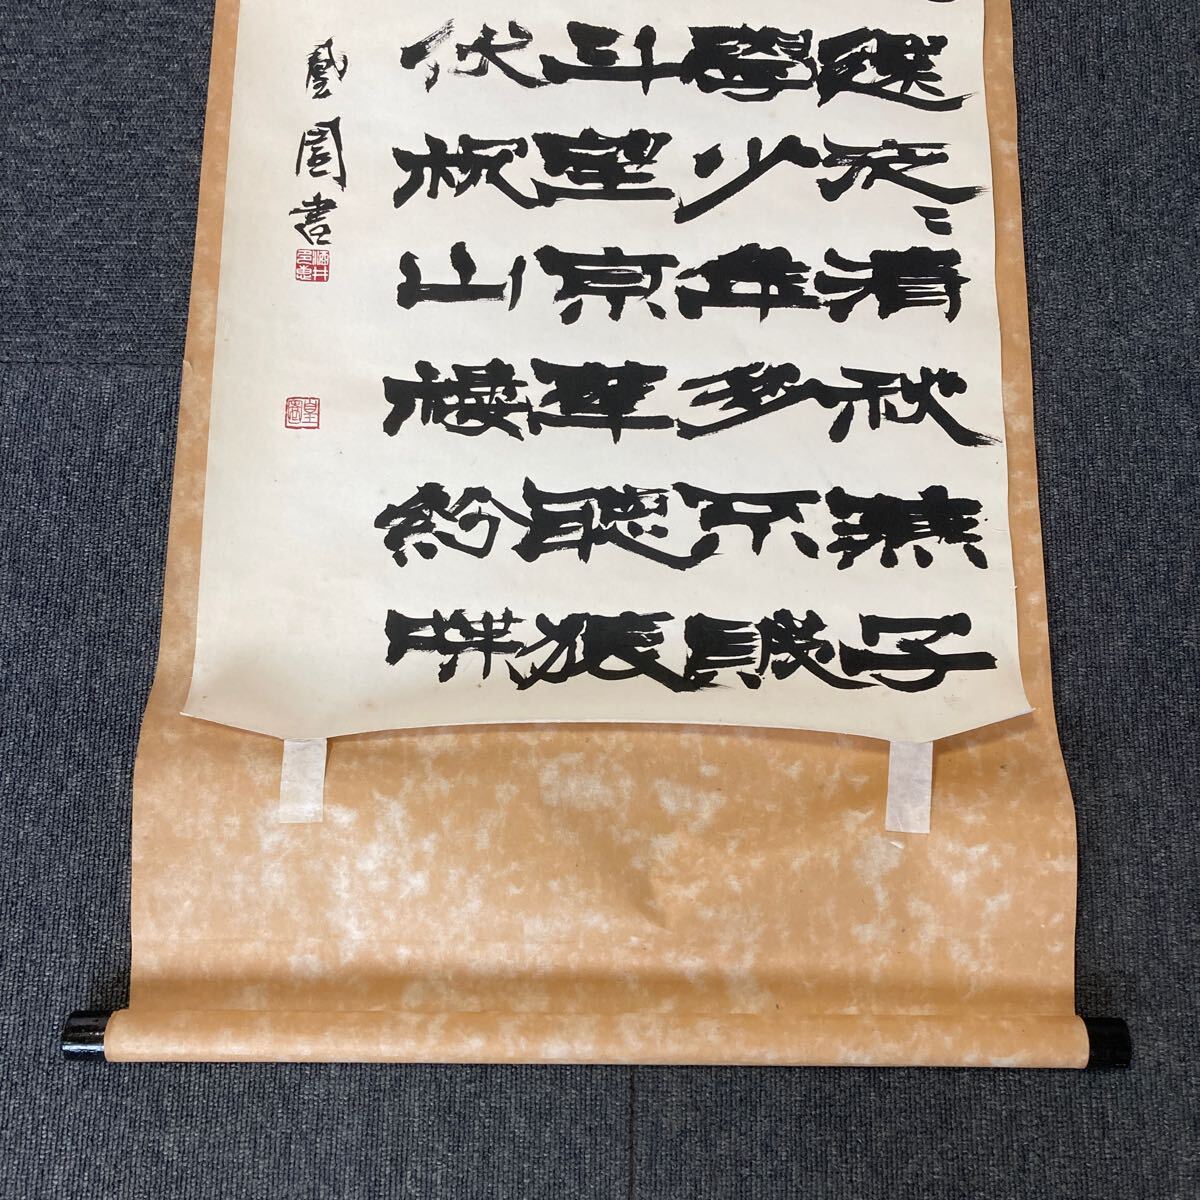 還泛〻清秋燕子
學少年多不賤
斗望京華聽猿
伏枕山樓粉堞
凰園書